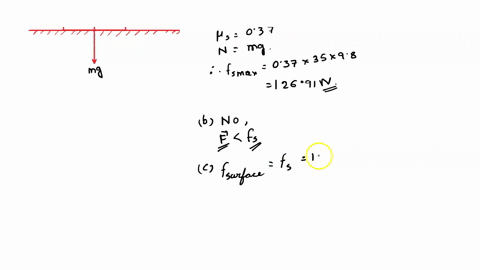 mg
μs = 0.37
N = mg.
∴ fsmax = 0.37 x 35 x 9.8
= 126.91 N.
(b) NO,
F < fs
(c) fsurface = fs = 1.